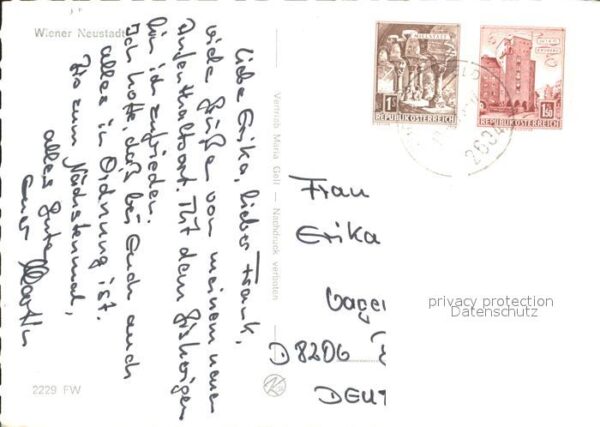 Wiener Neustadt
liebe Erika, lieber Frank,
viele Grüße von meinem neuen
Aufenthaltsort. Mit dem bisherigen
bin ich zufrieden.
Ich hoffe, daß bei Euch auch
alles in Ordnung ist.
Bis zum Nächstenmal,
alles Gute
Euer
2229 FW
Vertrieb Maria Goll — Nachdruck verboten
MILLSTATT
1 S
REPUBLIK ÖSTERREICH
1.50
REPUBLIK ÖSTERREICH
Frau
Erika
D 8206
DEUT
privacy protection
Datenschutz